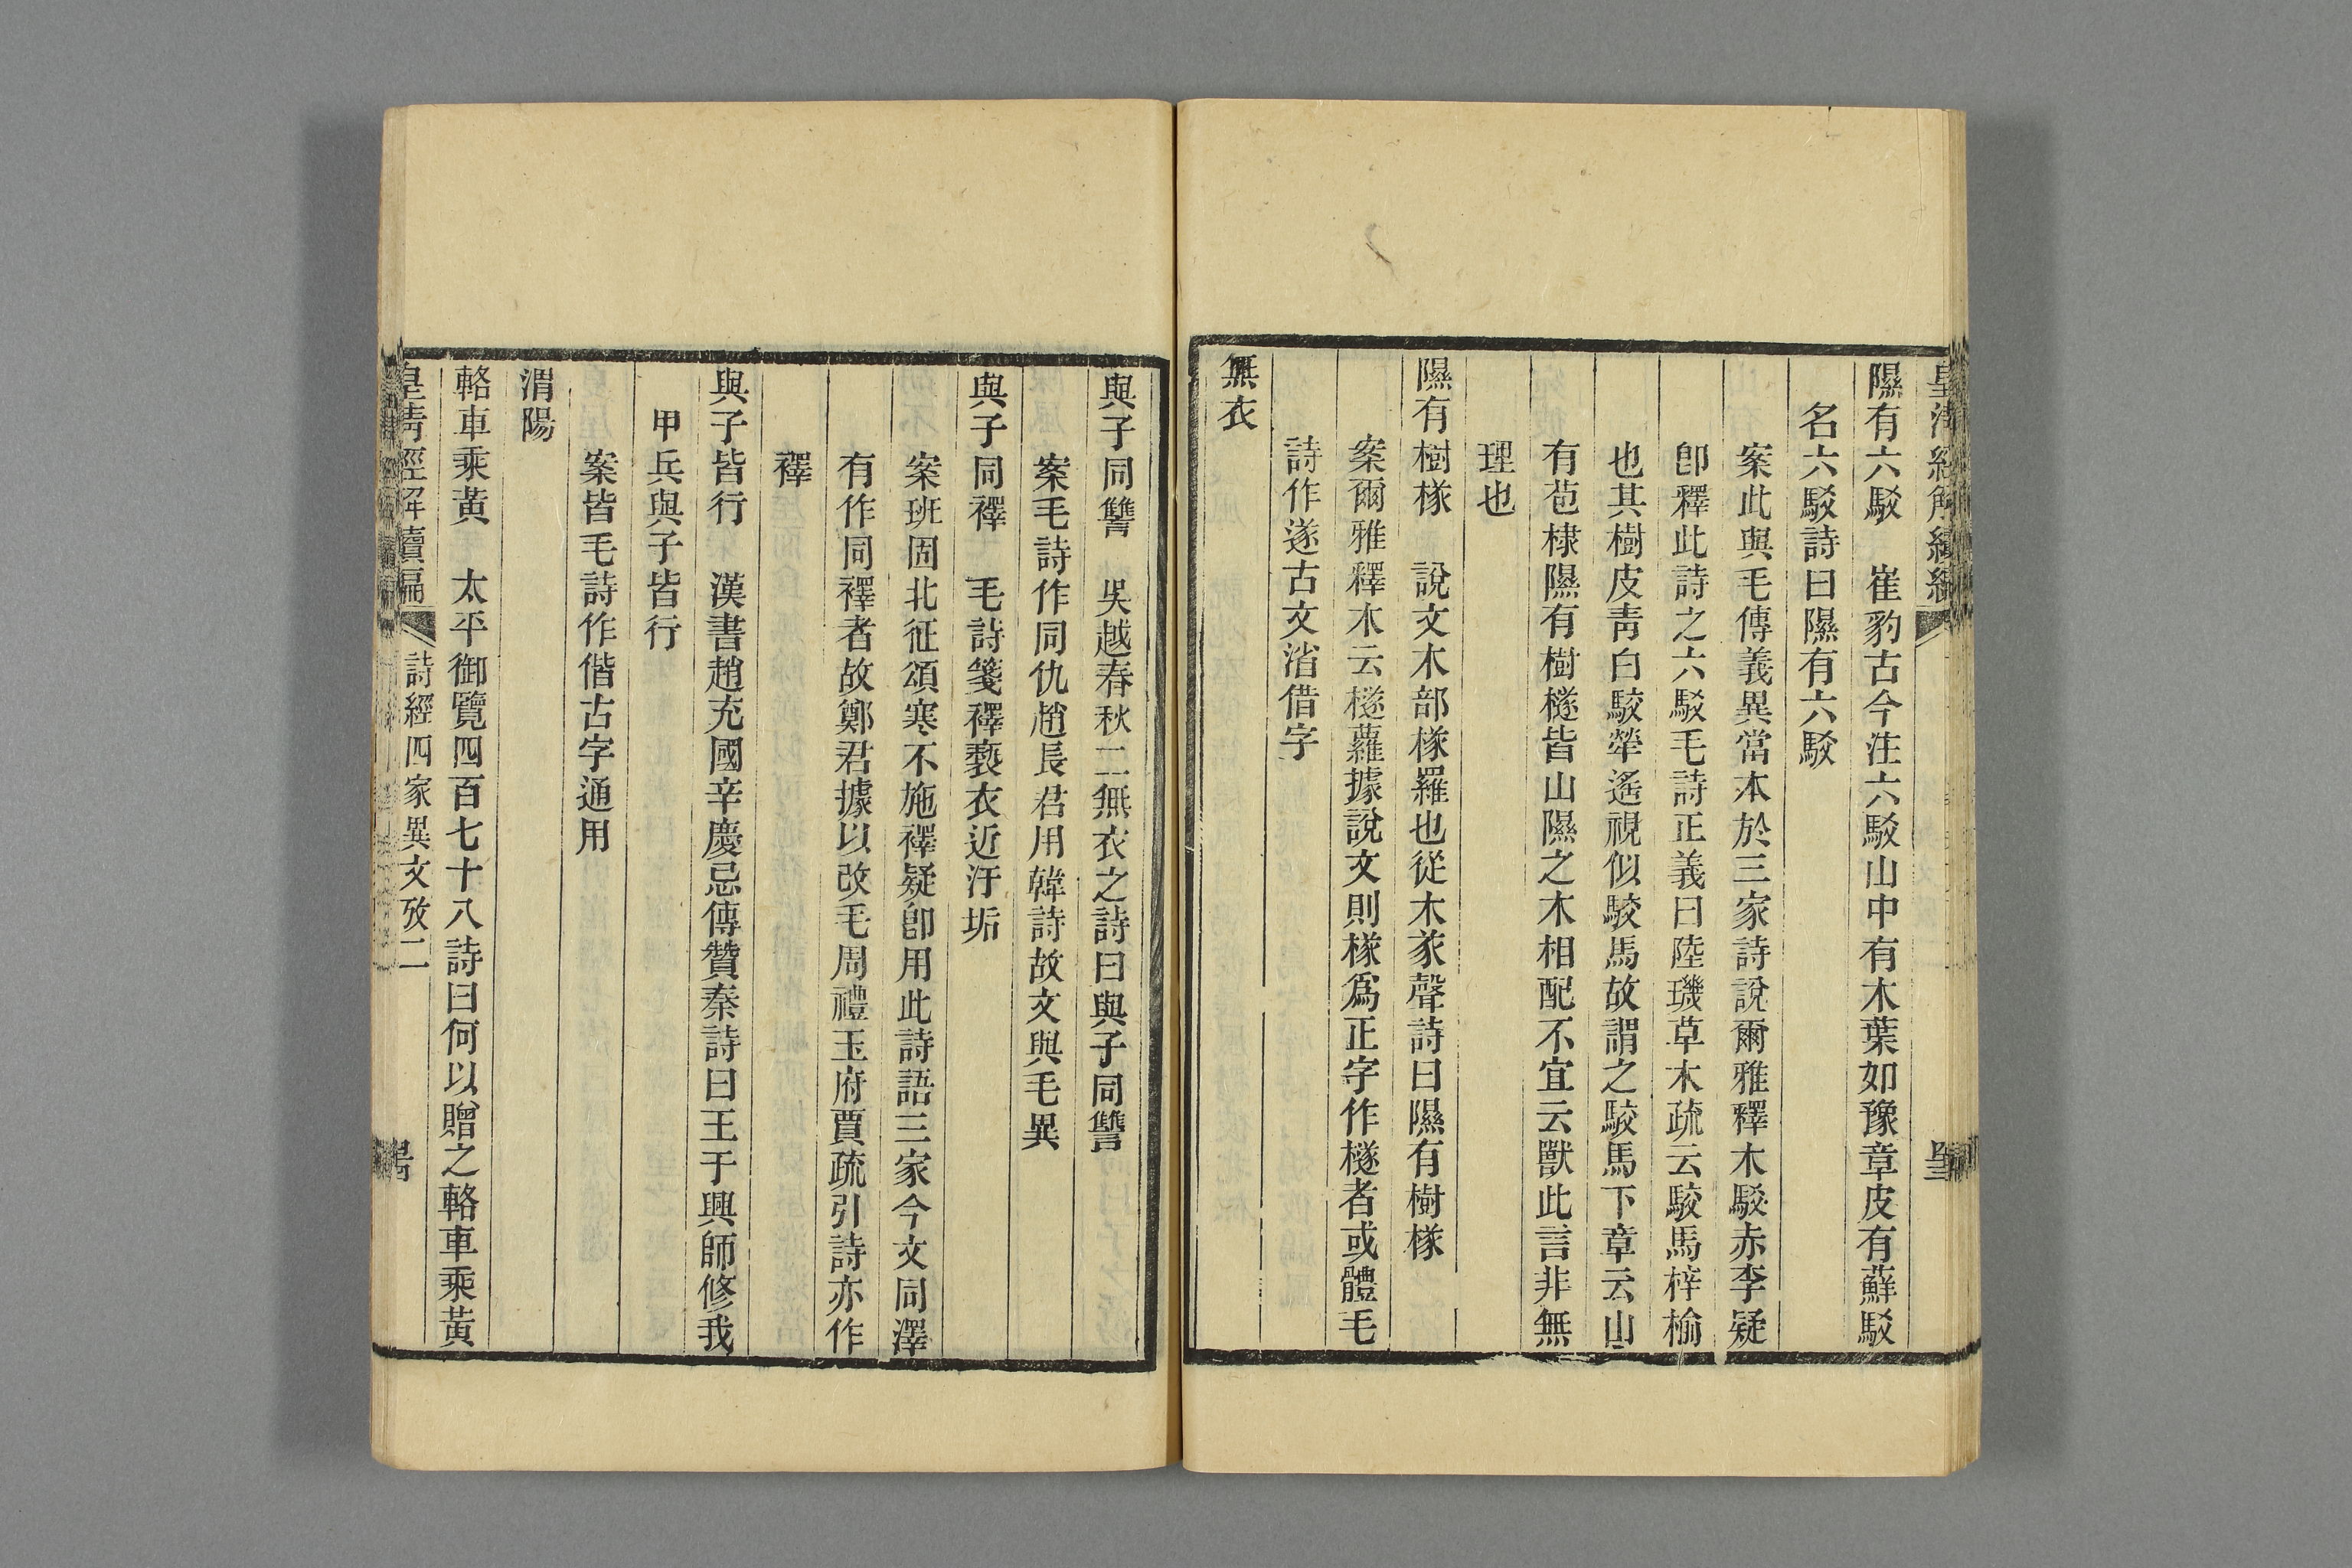 隰有六駮　崔豹古今注六駮山中有木葉如豫章皮有蘚駮
名六駮詩曰隰有六駮
案此與毛傳義異當本於三家詩說爾雅釋木駮赤李疑
卽釋此詩之六駮毛詩正義曰陸璣草木疏云駮馬梓榆
也其樹皮靑白駮犖遙視似駮馬故謂之駮馬下章云山
有苞棣隰有樹檖皆山隰之木相配不宜云獸此言非無
理也
隰有樹檖　說文木部檖羅也從木㒸聲詩曰隰有樹檖
案爾雅釋木云檖蘿據說文則檖爲正字作檖者或體毛
詩作遂古文渻借字
無衣
與子同讐　吳越春秋二無衣之詩曰與子同讐
案毛詩作同仇趙長君用韓詩故文與毛異
與子同襗　毛詩箋襗褻衣近汙垢
案班固北征頌寒不施襗疑卽用此詩語三家今文同澤
有作同襗者故鄭君據以改毛周禮玉府賈疏引詩亦作
襗
與子皆行　漢書趙充國辛慶忌傳贊秦詩曰王于興師修我
甲兵與子皆行
案皆毛詩作偕古字通用
渭陽
輅車乘黃　太平御覽四百七十八詩曰何以贈之輅車乘黃
皇清經解續編　詩經四家異文攷二